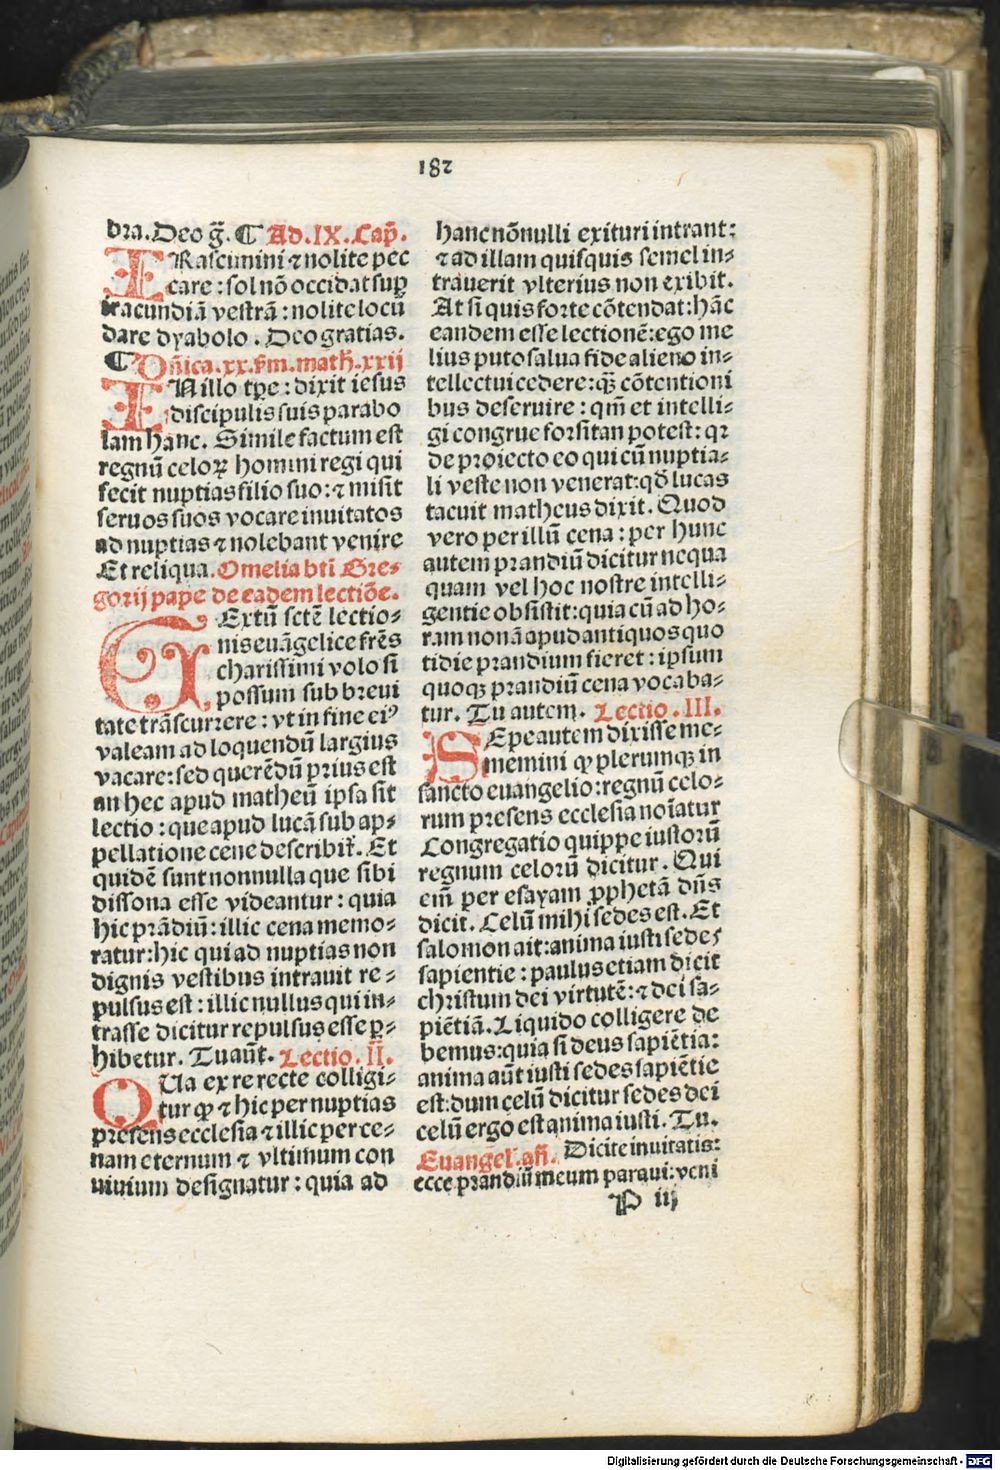 182
bra. Deo g̃. ¶ Ad. IX. Cap̃.
IRascimini ⁊ nolite pec
care : sol nō occidat sup̱
iracundiā vestrā : nolite locū
dare dyabolo . Deo gratias.
¶ Dñica. xx. s̃m. math̄. xxij
IN illo tp̃e : dixit iesus
discipulis suis parabo
lam hanc. Simile factum est
regnū celoꝝ homini regi qui
fecit nuptias filio suo : ⁊ misit
seruos suos vocare inuitatos
ad nuptias ⁊ nolebant venire
Et reliqua. Omelia bti̅ Gre⸗
gorij pape de eadem lectiōe.
TExtū sctē lectio⸗
nis euāgelice frēs
charissimi volo si
possum sub breui
tate trāscurrere : vt in fine eiꝰ
valeam ad loquendū largius
vacare : sed querēdū prius est
an hec apud matheū ipsa sit
lectio : que apud lucā sub ap⸗
pellatione cene describit᷑. Et
quidē sunt nonnulla que sibi
dissona esse videantur : quia
hic prādiū : illic cena memo⸗
ratur : hic qui ad nuptias non
dignis vestibus intrauit re⸗
pulsus est : illic nullus qui in⸗
trasse dicitur repulsus esse ꝑ⸗
hibetur. Tu aūt. Lectio. II.
QUa ex re recte colligi⸗
tur ꝙ ⁊ hic per nuptias
presens ecclesia ⁊ illic per ce⸗
nam eternum ⁊ vltimum con
uiuium designatur : quia ad
hanc nōnulli exituri intrant :
⁊ ad illam quisquis semel in⸗
trauerit vlterius non exibit.
At si quis forte cōtendat : hāc
eandem esse lectionē : ego me
lius puto salua fide alieno in⸗
tellectui cedere : qꝫ̄ cōtentioni
bus deseruire : qm̄ et intelli⸗
gi congrue forsitan potest : qꝛ
de proiecto eo qui cū nuptia⸗
li veste non venerat : qd̄ lucas
tacuit matheus dixit. Quod
vero per illū cena : per hunc
autem prandiū dicitur nequa
quam vel hoc nostre intelli⸗
gentie obsistit : quia cū ad ho⸗
ram nonā apud antiquos quo
tidie prandium fieret : ipsum
quoqꝫ prandiū cena vocaba⸗
tur. Tu autem. Lectio . III.
SEpe autem dixisse me⸗
memini ꝙ plerumqꝫ in
sancto euangelio : regnū celo⸗
rum presens ecclesia noīatur
Congregatio quippe iustorū
regnum celorū dicitur. Qui
em̄ per esayam ꝓphetā dn̄s
dicit. Celū mihi sedes est. Et
salomon ait : anima iusti sedes
sapientie : paulus etiam dicit
christum dei virtutē : ⁊ dei sa⸗
piētiā. Liquido colligere de
bemus : quia si deus sapiētia :
anima aūt iusti sedes sapiētie
est : dum celū dicitur sedes dei
celū ergo est anima iusti. Tu.
Euangel. añ. Dicite inuitatis :
ecce prandiū meum paraui : veni
P iij
Digitalisierung gefördert durch die Deutsche Forschungsgemeinschaft - DFG